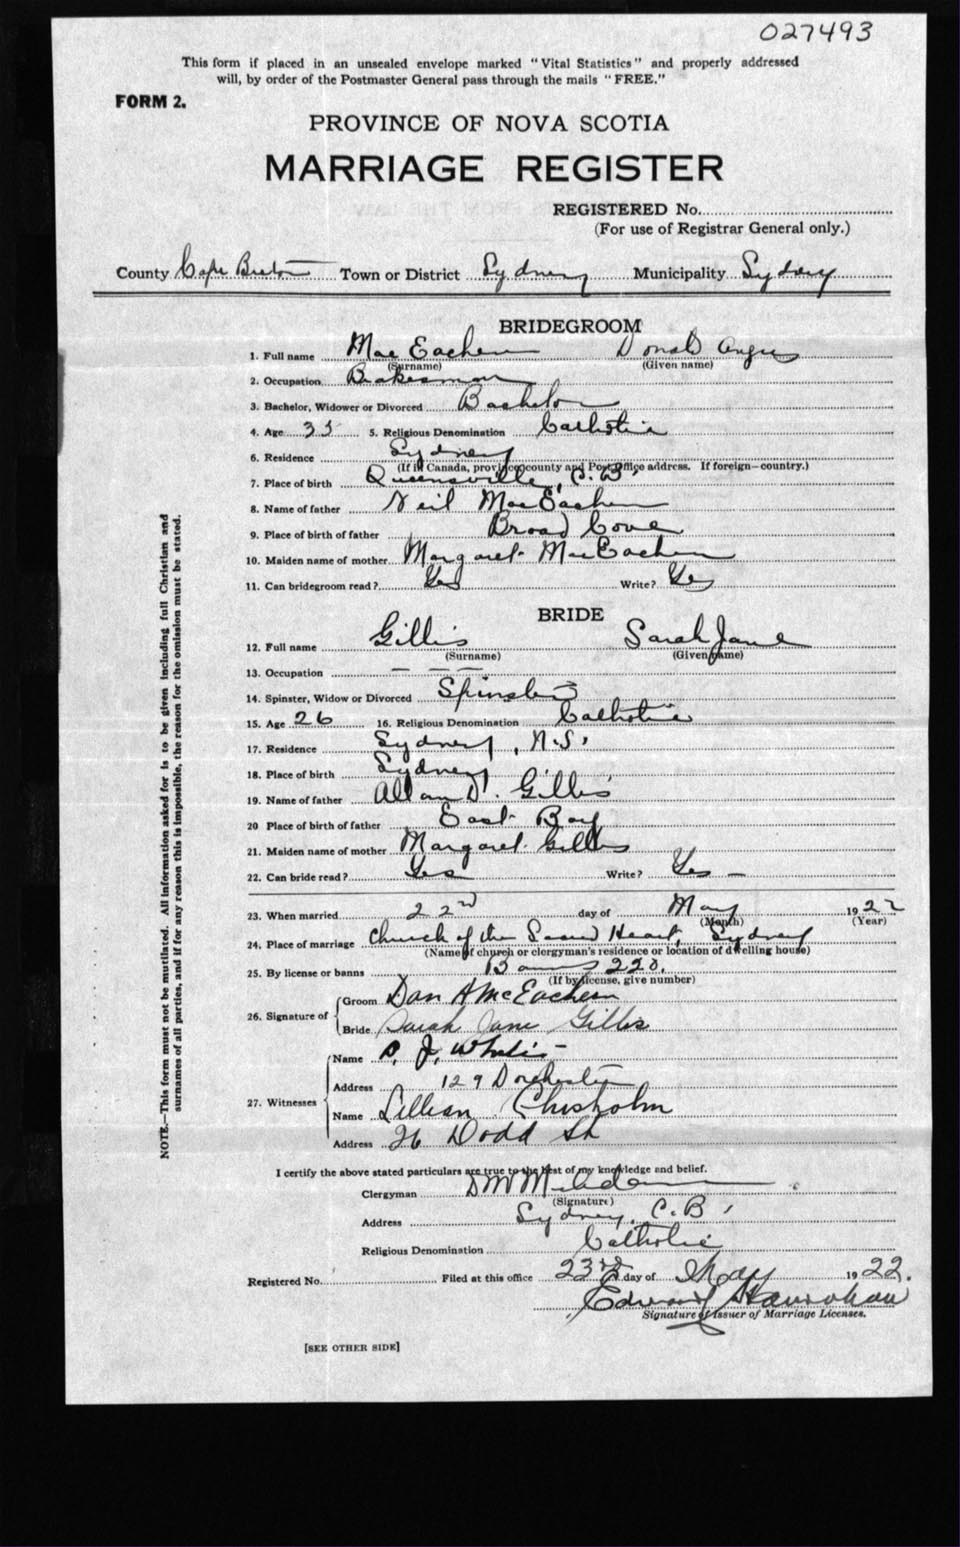 027493
This form if placed in an unsealed envelope marked "Vital Statistics" and properly addressed
will, by order of the Postmaster General pass through the mails "FREE."
FORM 2.
PROVINCE OF NOVA SCOTIA
MARRIAGE REGISTER
REGISTERED No.
(For use of Registrar General only.)
County Cape Breton Town or District Sydney Municipality Sydney
BRIDEGROOM
1. Full name Mac Eachern Donald Angus
(Surname) (Given name)
2. Occupation Brakesman
3. Bachelor, Widower or Divorced Bachelor
4. Age 35 5. Religious Denomination Catholic
6. Residence Sydney
(If in Canada, province county and Post Office address. If foreign—country.)
7. Place of birth Queensville, C.B.
8. Name of father Neil MacEachern
9. Place of birth of father Broad Cove
10. Maiden name of mother Margaret MacEachern
11. Can bridegroom read? Yes Write? Yes
BRIDE
12. Full name Gillis Sarah Jane
(Surname) (Given name)
13. Occupation — — —
14. Spinster, Widow or Divorced Spinster
15. Age 26 16. Religious Denomination Catholic
17. Residence Sydney, N.S.
18. Place of birth Sydney
19. Name of father Allan D. Gillis
20 Place of birth of father East Bay
21. Maiden name of mother Margaret Gillis
22. Can bride read? Yes Write? Yes —
23. When married 22nd day of May 1922
(Month) (Year)
24. Place of marriage Church of the Sacred Heart, Sydney
(Name of church or clergyman's residence or location of dwelling house)
25. By license or banns Banns 220.
(If by license, give number)
26. Signature of Groom Dan A McEachern
Bride Sarah Jane Gillis
27. Witnesses Name J.
Address 129 Dorchester
Name Lillian Chisholm
Address 26 Dodd St
I certify the above stated particulars are true to the best of my knowledge and belief.
Clergyman
(Signature)
Address Sydney, C.B.
Religious Denomination Catholic
Registered No. Filed at this office 23rd day of May 1922.
Edward
Signature of Issuer of Marriage Licenses.
[SEE OTHER SIDE]
NOTE.—This form must not be mutilated. All information asked for is to be given including full Christian and
surnames of all parties, and if for any reason this is impossible, the reason for the omission must be stated.